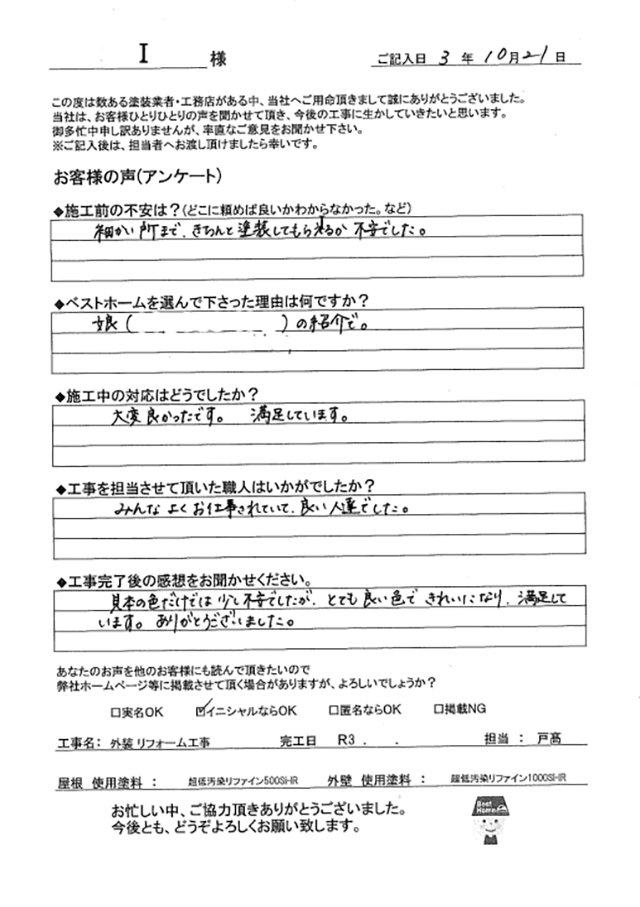 I 様
ご記入日 3 年 10月21日
この度は数ある塗装業者・工務店がある中、当社へご用命頂きまして誠にありがとうございました。
当社は、お客様ひとりひとりの声を聞かせて頂き、今後の工事に生かしていきたいと思います。
御多忙中申し訳ありませんが、率直なご意見をお聞かせ下さい。
※ご記入後は、担当者へお渡し頂けましたら幸いです。
お客様の声(アンケート)
◆施工前の不安は?(どこに頼めば良いかわからなかった。など)
細かい所まで、きちんと塗装してもらえるか 不安でした。
◆ベストホームを選んで下さった理由は何ですか?
娘( )の紹介で。
◆施工中の対応はどうでしたか?
大変良かったです。 満足しています。
◆工事を担当させて頂いた職人はいかがでしたか?
みんな よく お仕事されていて、良い人達でした。
◆工事完了後の感想をお聞かせください。
見本の色だけでは 少し不安でしたが、とても 良い色で きれいになり、満足して
います。 ありがとうございました。
あなたのお声を他のお客様にも読んで頂きたいので
弊社ホームページ等に掲載させて頂く場合がありますが、よろしいでしょうか?
□実名OK ☑イニシャルならOK □匿名ならOK □掲載NG
工事名: 外装リフォーム工事 完工日 R3 . . 担当 : 戸髙
屋根 使用塗料 : 超低汚染リファイン500Si-IR 外壁 使用塗料 : 超低汚染リファイン1000Si-IR
お忙しい中、ご協力頂きありがとうございました。
今後とも、どうぞよろしくお願い致します。
Best
Home